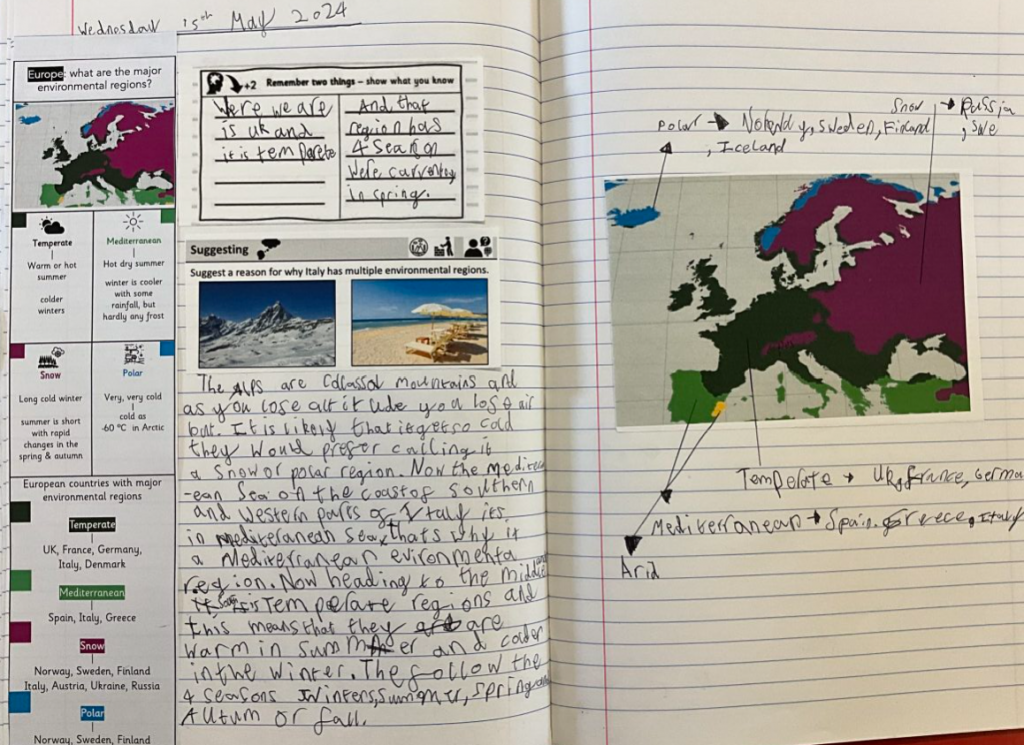 Wednesday 15th May 2024
Europe: what are the major
environmental regions?
Temperate
Warm or hot
summer
colder
winters
Mediterranean
Hot dry summer
winter is cooler
with some
rainfall, but
hardly any frost
Snow
Long cold winter
summer is short
with rapid
changes in the
spring & autumn
Polar
Very, very cold
cold as
-60 °C in Arctic
European countries with major
environmental regions
Temperate
UK, France, Germany,
Italy, Denmark
Mediterranean
Spain, Italy, Greece
Snow
Norway, Sweden, Finland
Italy, Austria, Ukraine, Russia
Polar
Norway, Sweden, Finland
+2 Remember two things – show what you know
Were we are
is uk and
it is temparete
And that
region has
4 Season
Were currentey
in spring.
Suggesting
Suggest a reason for why Italy has multiple environmental regions.
The Alps are Collassol mountains and
as you lose altitude you lose air
but. It is likely that it gets so cold
they would prefer calling it
a snow or polar region. Now the Medite
-ean Sea on the coast of southern
and western parts of Italy its
in Mediteranean sea thats why it
a Mediterranean evironmenta
region. Now heading to the middle
is Temperare regions and
this means that they are
warm in summer and colder
in the winter. The follow the
4 seasons Winters, Summer, spring
Autum or fall.
Snow → Russia
, Swe
Polar → Norway, Sweden, Finland
, Iceland
Temperate → UK, France, Germa
Mediterranean → Spain. Greece, Italy
Arid